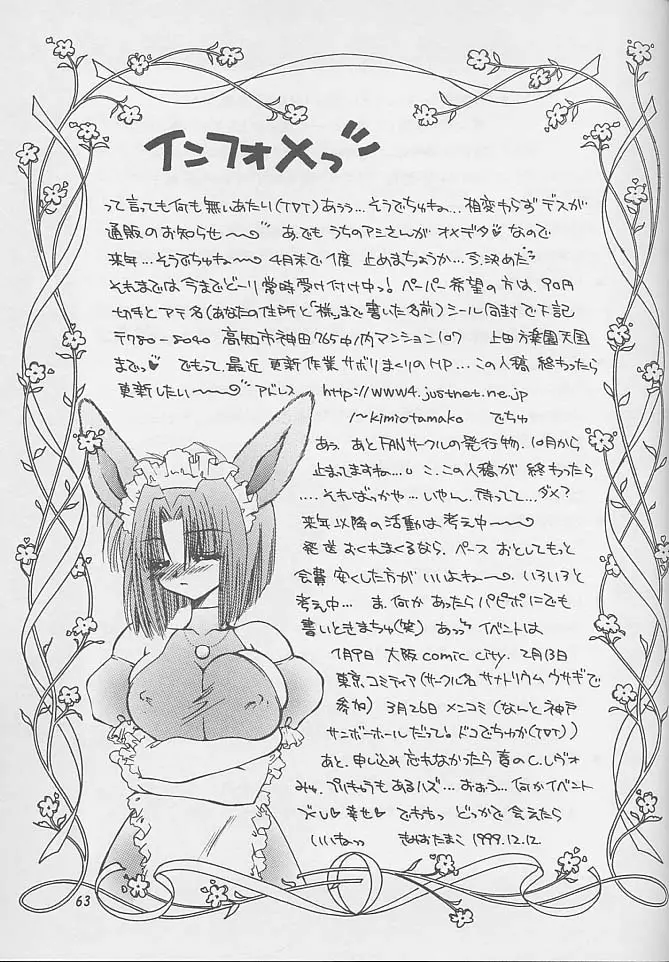 インフォメっ
って言っても何も無いあたり(TДT)あぅぅ…そうでちゅね…相変わらずデスが
通販のお知らせ〜 あ、でも うちのアミさんが オメデタ♡なので
来年…そうでちゅね〜 4月末で1度 止めまちょうか…今、決めた?
それまでは今までどーり常時受け付け中っ! ペーパー希望の方は、90円
切手とアテ名(あなたの住所と「様」まで書いた名前)シール同封で下記
〒780-8040 高知市神田765 内マンション107 上田方楽園天国
までっ♡ でもって、最近 更新作業サボりまくりのHP…この入稿終わったら
更新したい〜 アドレス http://www4.justnet.ne.jp
/〜kimiotamako でちゅ
あぅ、あとFANサークルの発行物、10月から
止まってますねぇ… こ、この入稿が 終わったら
....そればっかや…いやん、待ってて…ダメ?
来年以降の活動は考え中〜
発送おくれまくるなら、ペース おとしてもっと
会費 安くした方が いいよね〜。いろいろと
考え中… ま、何か あったらパピポにでも
書いときまちゅ(笑) あっ イベントは
1月9日 大阪comic city. 2月13日
東京コミティア(サークル名 サナトリウム ウサギで
参加) 3月26日 メニコミ(なんと神戸
サンボーホールだって! ドコでちゅか(TДT))
あと、申し込み 忘れなかったら 春のC.レヴォ
みゅ、プリきゅうもあるハズ… おぉう…何かイベント
ズくし♡幸せ♡ でわわっ どっかで会えたら
いいねっ きみおたまこ 1999.12.12.
63